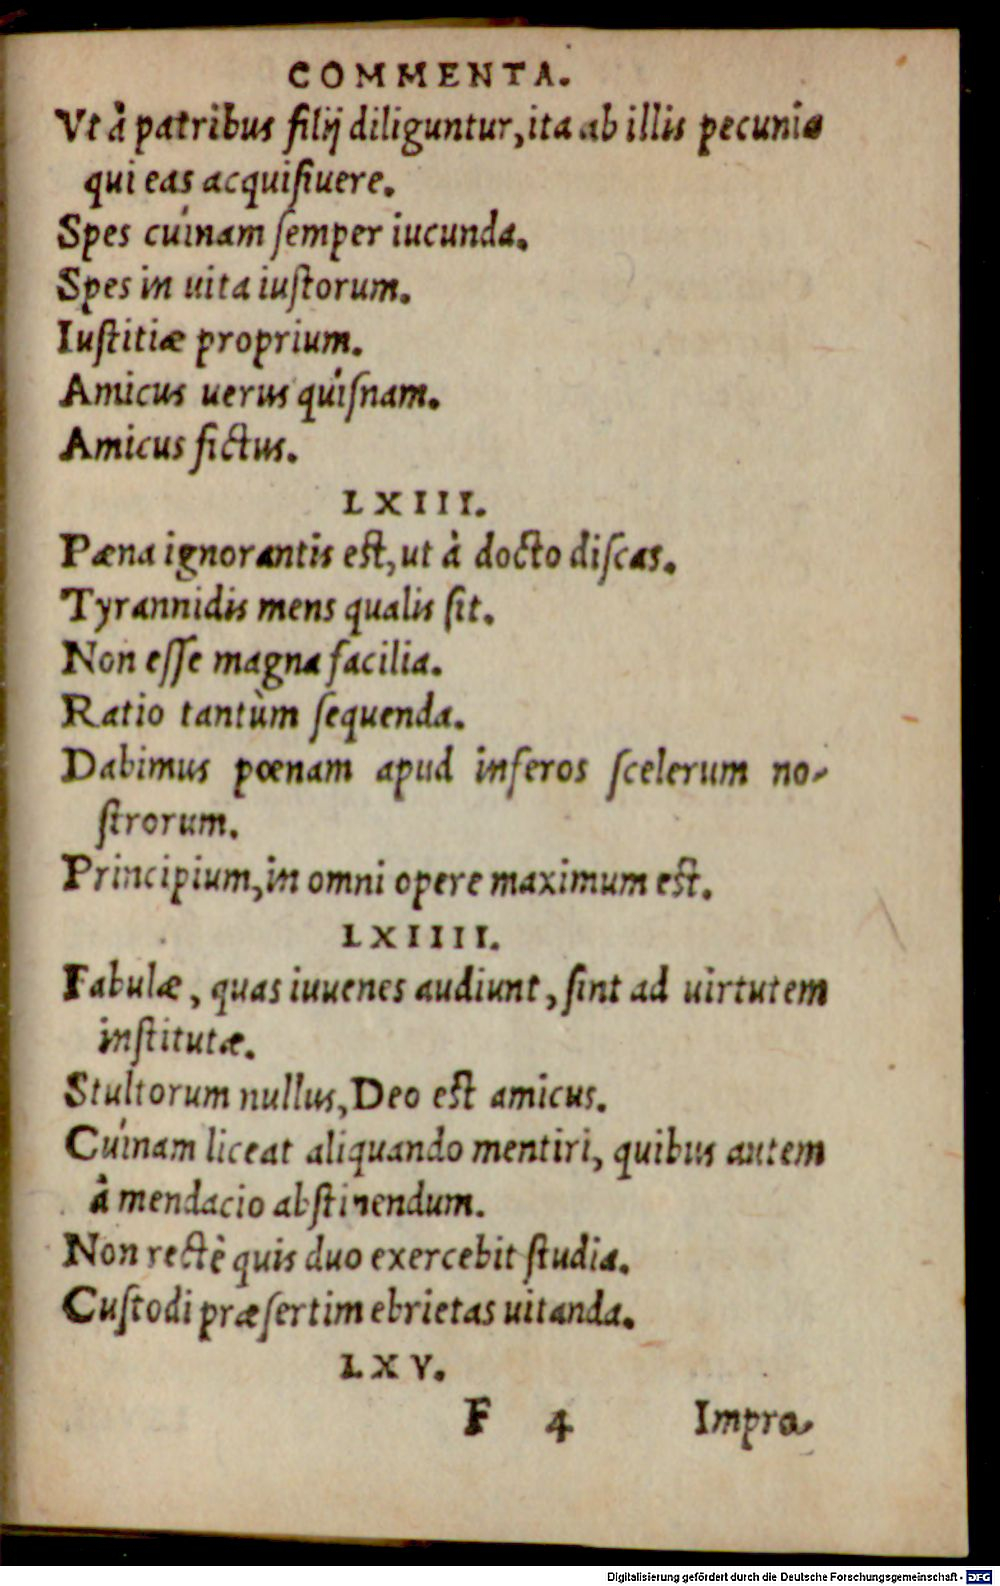 COMMENTA.
Vt à patribus filij diliguntur, ita ab illis pecuniæ
qui eas acquisiuere.
Spes cuínam semper iucunda.
Spes in uita iustorum.
Iustitiæ proprium.
Amicus uerus quísnam.
Amicus fictus.
LXIII.
Pæna ignorantis est, ut à docto discas.
Tyrannidis mens qualis sit.
Non esse magna facilia.
Ratio tantùm sequenda.
Dabimus pœnam apud inferos scelerum no-
strorum.
Principium, in omni opere maximum est.
LXIIII.
Fabulæ, quas iuuenes audiunt, sint ad uirtutem
institutæ.
Stultorum nullus, Deo est amicus.
Cuínam liceat aliquando mentiri, quibus autem
à mendacio abstinendum.
Non rectè quis duo exercebit studia.
Custodi præsertim ebrietas uitanda.
LXV.
F 4 Impra-
Digitalisierung gefördert durch die Deutsche Forschungsgemeinschaft - DFG